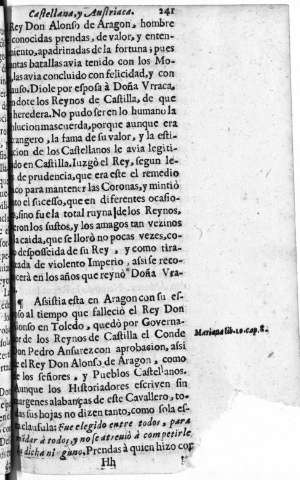 Castellana, y Austriaca. 241
Rey Don Alonso de Aragon, hombre
conocidas prendas, de valor, y enten-
miento, apadrinadas de la fortuna; pues
ntas batallas avia tenido con los Mo-
las avia concluido con felicidad, y con
uso. Diole por esposa à Doña Vrraca,
ndote los Reynos de Castilla, de que
heredera. No pudo ser en lo humano la
olucion mas cuerda, porque aunque era
trangero, la fama de su valor, y la esti-
cion de los Castellanos le avia legiti-
do en Castilla. Iuzgò el Rey, segun le-
de prudencia, que era este el remedio
co para mantener las Coronas, y mintiò
to el sucesso, que en diferentes ocasio-
, sino fue la total ruyna de los Reynos,
tron los sustos, y los amagos tan vezinos
la caida, que se llorò no pocas vezes, co-
desposseida de su Rey, y como tira-
ada de violento Imperio, assi se reco-
cerà en los años que reynò Doña Vra-
¶ Assistia esta en Aragon con su es-
so al tiempo que falleciò el Rey Don
onso en Toledo, quedò por Governa-
or de los Reynos de Castilla el Conde
Don Pedro Ansurez con aprobasion, assi
el Rey Don Alonso de Aragon, como
e los señores, y Pueblos Castellanos.
Aunque los Historiadores escriven sin
margenes alabanças de este Cavallero, to-
das sus hojas no dizen tanto, como sola es-
clausula: Fue elegido entre todos, para
midar à todos, y no se atreviò à competirle
dicha ninguno. Prendas à quien hizo cor
Hh
Mariana lib. 10. cap. 8.